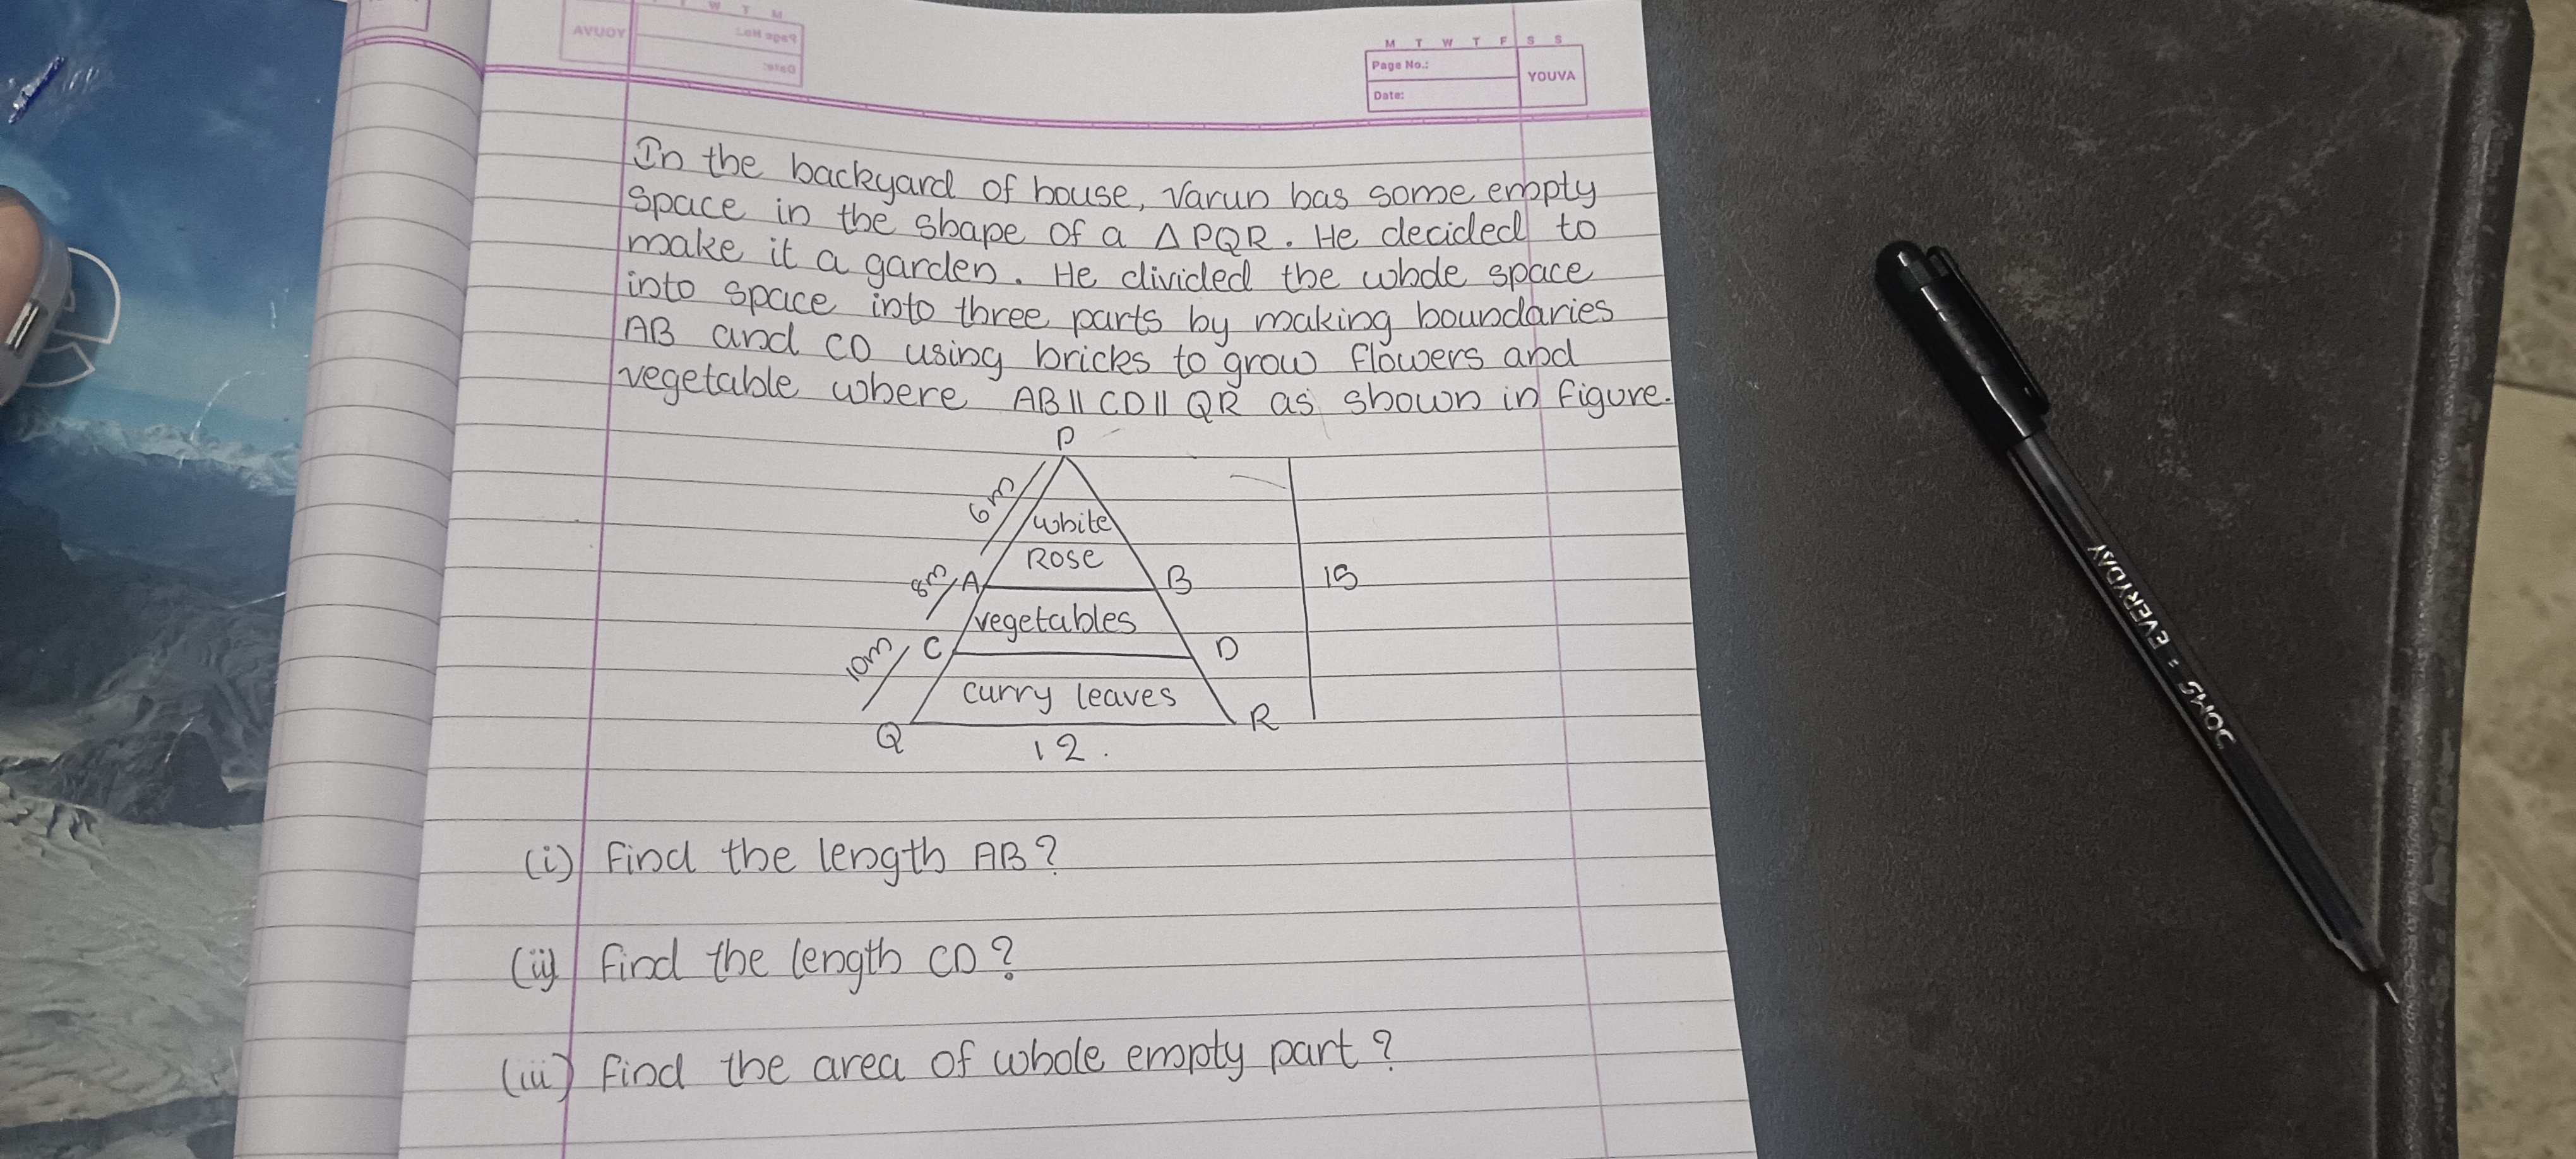 M T W T F S S
Page No.:
YOUVA
Date:
In the backyard of house, Varun has some empty
space in the shape of a △ PQR. He decided to
make it a garden. He divided the whole space
into space into three parts by making boundaries
AB and CD using bricks to grow flowers and
vegetable where AB || CD || QR as shown in figure.
P
6m
white
Rose
8m
A
B
15
vegetables
10m
C
D
curry leaves
Q
R
12.
(i) Find the length AB?
(ii) Find the length CD?
(iii) Find the area of whole empty part?
SOMS - EVERYDAY